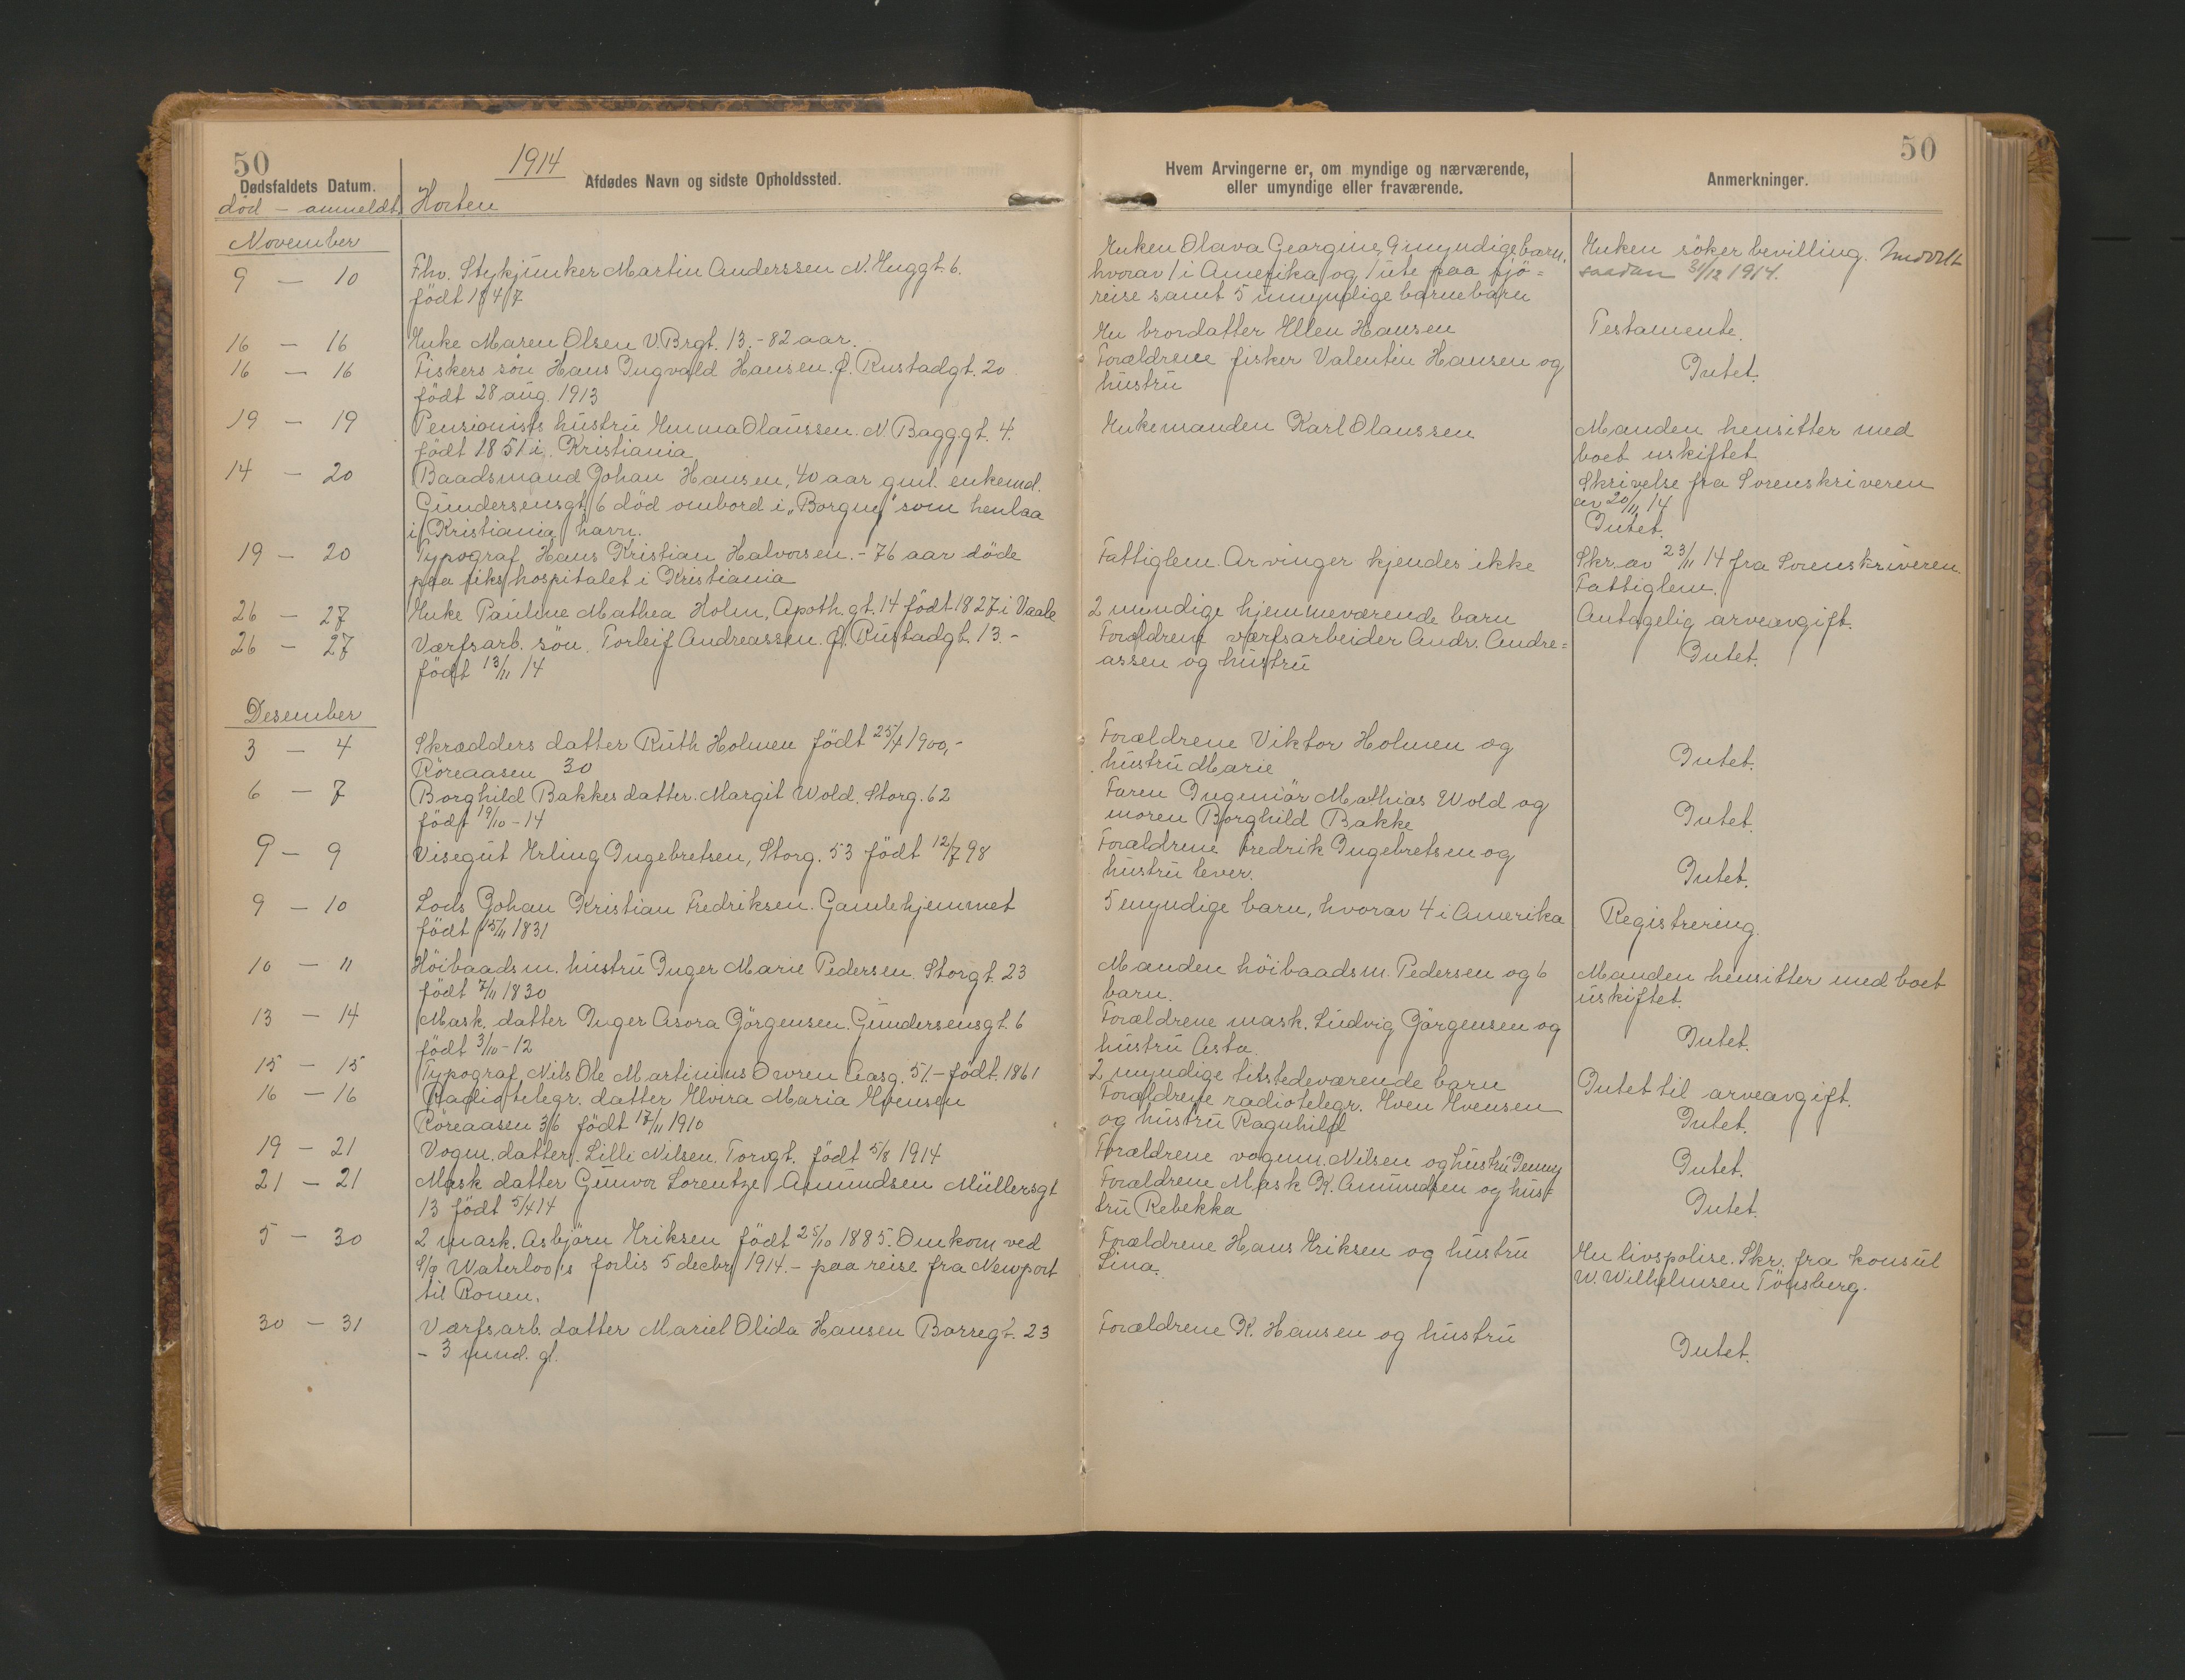 50
1914
50
Dødsfaldets Datum.
Afdødes Navn og sidste Opholdssted.
Hvem Arvingerne er, om myndige og nærværende,
eller umyndige eller fraværende.
Anmerkninger.
död – anmeldt
Horten
November
9 – 10 Fhv. Stykjunker Martin Anderssen N. Enggt. 6.
född 1847
Enken Olava Georgine, 9 myndige barn,
hvorav 1 i Amerika og 1 ute paa sjö=
reise samt 5 umyndige barnebarn
Enken söker bevilling. Meddelt
saadan 31/12 1914.
16 – 16 Enke Maren Olsen V. Brgt. 13. – 82 aar.
En brordatter Ellen Hansen
Testamente.
16 – 16 Fiskers sön Hans Ingvald Hansen. Ø. Rustadgt. 20
födt 28 aug. 1913
Forældrene fisker Valentin Hansen og
hustru
Intet.
19 – 19 Pensionists hustru Emma Olaussen. N. Bagggt. 4.
födt 1851 i Kristiania
Enkemanden Karl Olaussen
Manden hensitter med
boet uskiftet.
14 – 20 Baadsmand Johan Hansen, 40 aar gml. enkemd.
Gundersensgt. 6 död ombord i "Borgny" som henlaa
i Kristiania havn.
Skrivelse fra Sorenskriveren
av 20/11 14
Intet.
19 – 20 Typograf Hans Kristian Halvorsen. – 76 aar döde
paa rikshospitalet i Kristiania
Fattiglem. Arvinger kjendes ikke
Skr. av 23/11 14 fra Sorenskriveren.
Fattiglem.
26 – 27 Enke Pauline Mathea Holm, Apoth. gt. 14 födt 1827 i Vaale
2 myndige hjemmeværende barn
Antagelig arveavgift.
26 – 27 Værfsarb. sön. Torleif Andreassen. Ø. Rustadgt. 13. –
födt 13/11 14
Forældrene værfsarbeider Andr. Andre=
assen og hustru
Intet.
Desember
3 – 4 Skrædders datter Ruth Holmen födt 25/4 1900, –
Röreaasen 30
Forældrene Viktor Holmen og
hustru Marie
Intet.
6 – 7 Borghild Bakkes datter. Margit Wold. Storg. 62
födt 19/10 – 14
Faren Ingeniör Mathias Wold og
moren Borghild Bakke
Intet.
9 – 9 Visegut Erling Ingebretsen, Storg. 53 födt 12/7 98
Forældrene Fredrik Ingebretsen og
hustru lever.
Intet.
9 – 10 Lods Johan Kristian Fredriksen. Gamlehjemmet
födt 15/11 1831
5 myndige barn, hvorav 4 i Amerika
Registrering.
10 – 11 Höibaadsm. hustru Inger Marie Pedersen. Storgt. 23
födt 7/11 1830
Manden höibaadsm. Pedersen og 6
barn.
Manden hensitter med boet
uskiftet.
13 – 14 Mask. datter Inger Asora Jörgensen. Gundersensgt. 6
födt 3/10 – 12
Forældrene mask. Ludvig Jörgensen og
hustru Asta.
Intet.
15 – 15 Typograf Nils Ole Martinius Owren Aasg. 51. – födt. 1861
2 myndige tilstedeværende barn
Intet til arveavgift.
16 – 16 Radiotelegr. datter Elvira Maria Evensen
Röreaasen 36 födt 17/11 1910
Forældrene radiotelegr. Even Evensen
og hustru Ragnhild
Intet.
19 – 21 Vogm. datter. Lilli Nilsen. Torvgt. födt 5/8 1914
Forældrene vognm. Nilsen og hustru Jenny
Intet.
21 – 21 Mask datter Gunvor Lorentze Amundsen Müllersgt
13 födt 5/4 14
Forældrene Mask K. Amundsen og hus=
tru Rebekka
Intet.
5 – 30 2 mask. Asbjörn Eriksen födt 25/10 1885. Omkom ved
S/S Waterloo's forlis 5 decbr 1914. – paa reise fra Newport
til Rouen.
Forældrene Hans Eriksen og hustru
Lina.
En livspolise. Skr. fra konsul
W. Wilhelmsen Tönsberg.
30 – 31 Værfsarb. datter Mariel Olida Hansen Barregt. 23
– 3 mnd. gl.
Forældrene K. Hansen og hustru
Intet.